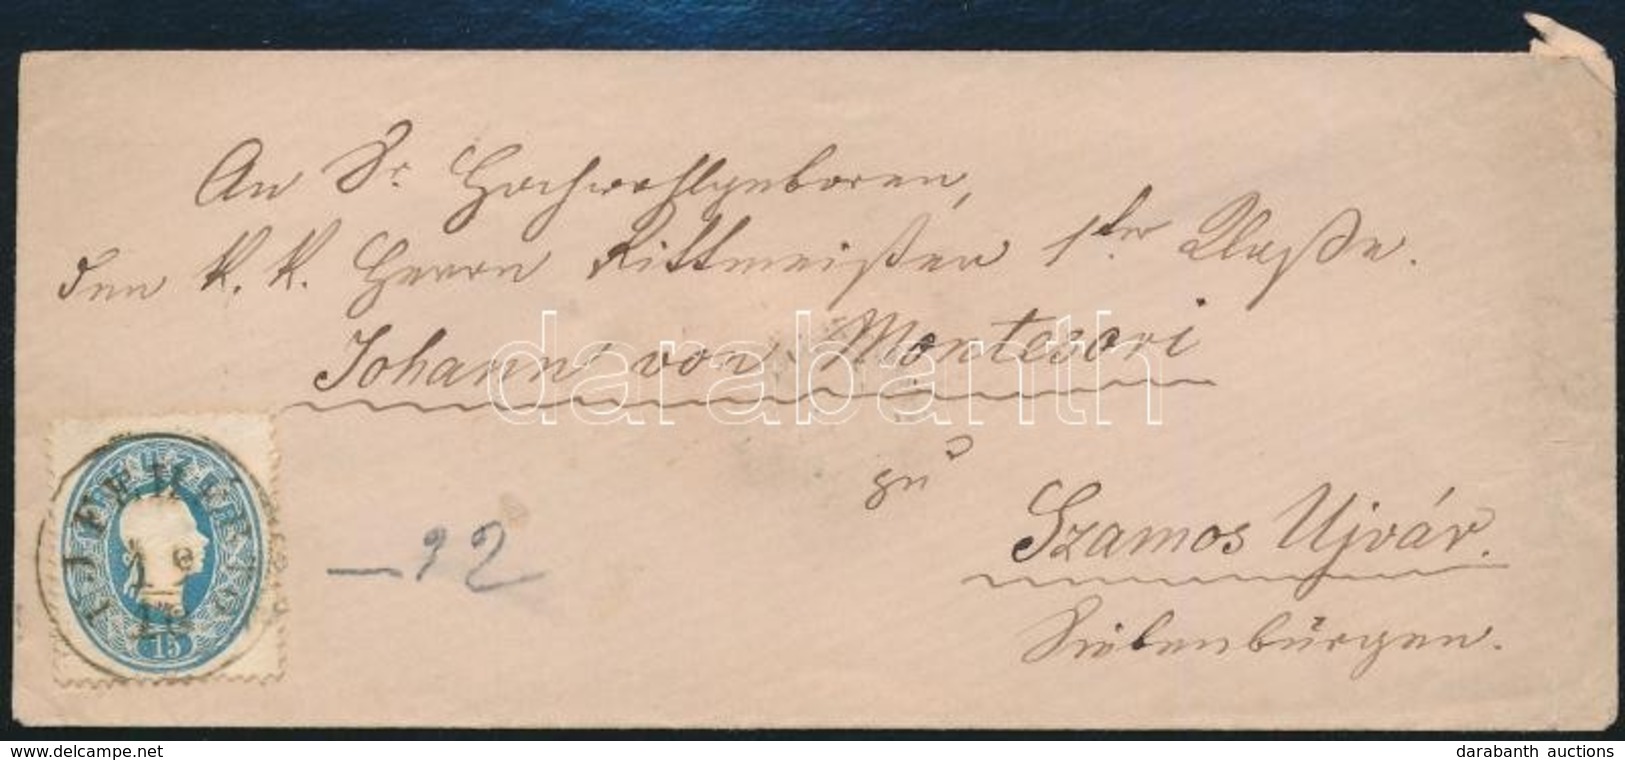 An Sr. Hochwohlgeboren,
den K. K. Herrn Rittmeister 1ter Klaße.
Johann von Montesori
zu
Szamos Ujvár.
Siebenbürgen.
15
darabanth
delcampe.net
darabanth auctions